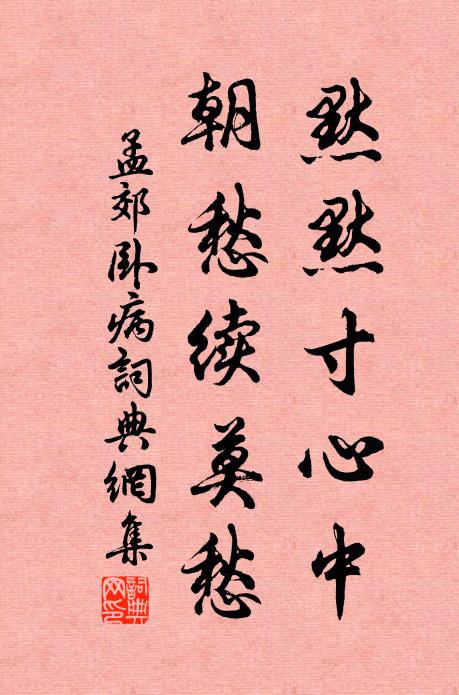 默默寸心中
朝愁续莫愁
孟郊卧病詞典網集
詞典网印